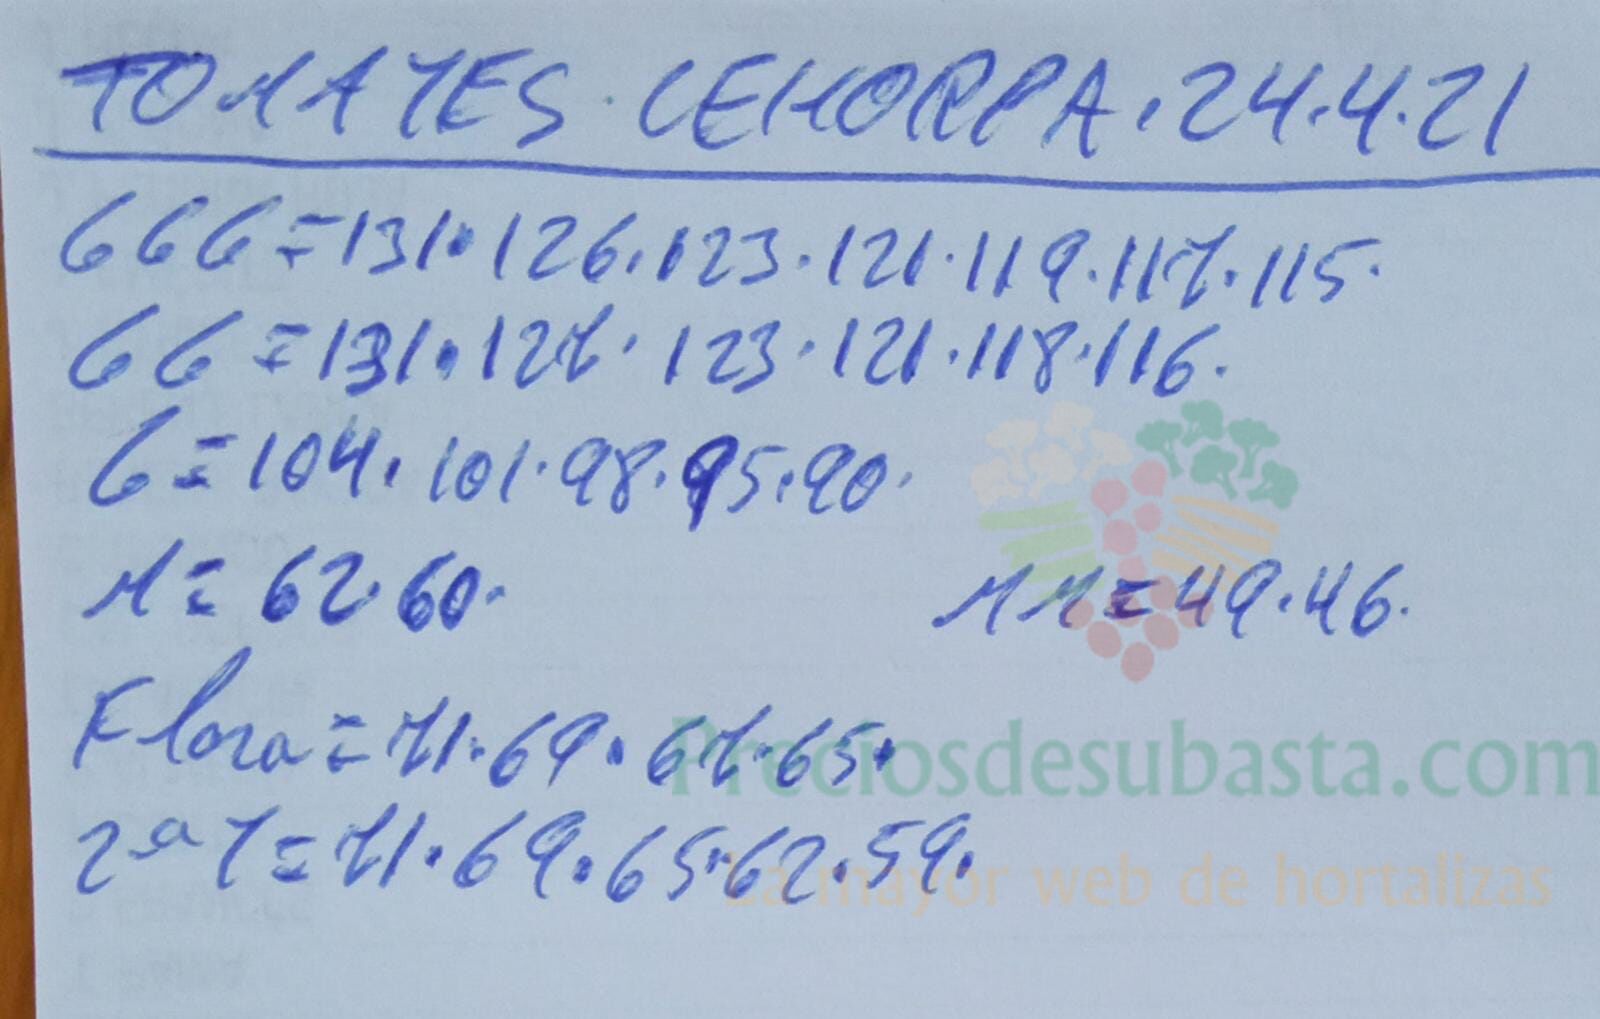 TOMATES. CEHORPA. 24.4.21
GGG = 131. 126. 123. 121. 119. 117. 115.
GG = 131. 127. 123. 121. 118. 116.
G = 104. 101. 98. 95. 90.
M = 62. 60. MM = 49. 46.
Flora = 71. 69. 67. 65.
Preciosdesubasta.com
2ª T = 71. 69. 65. 62. 59.
La mayor web de hortalizas